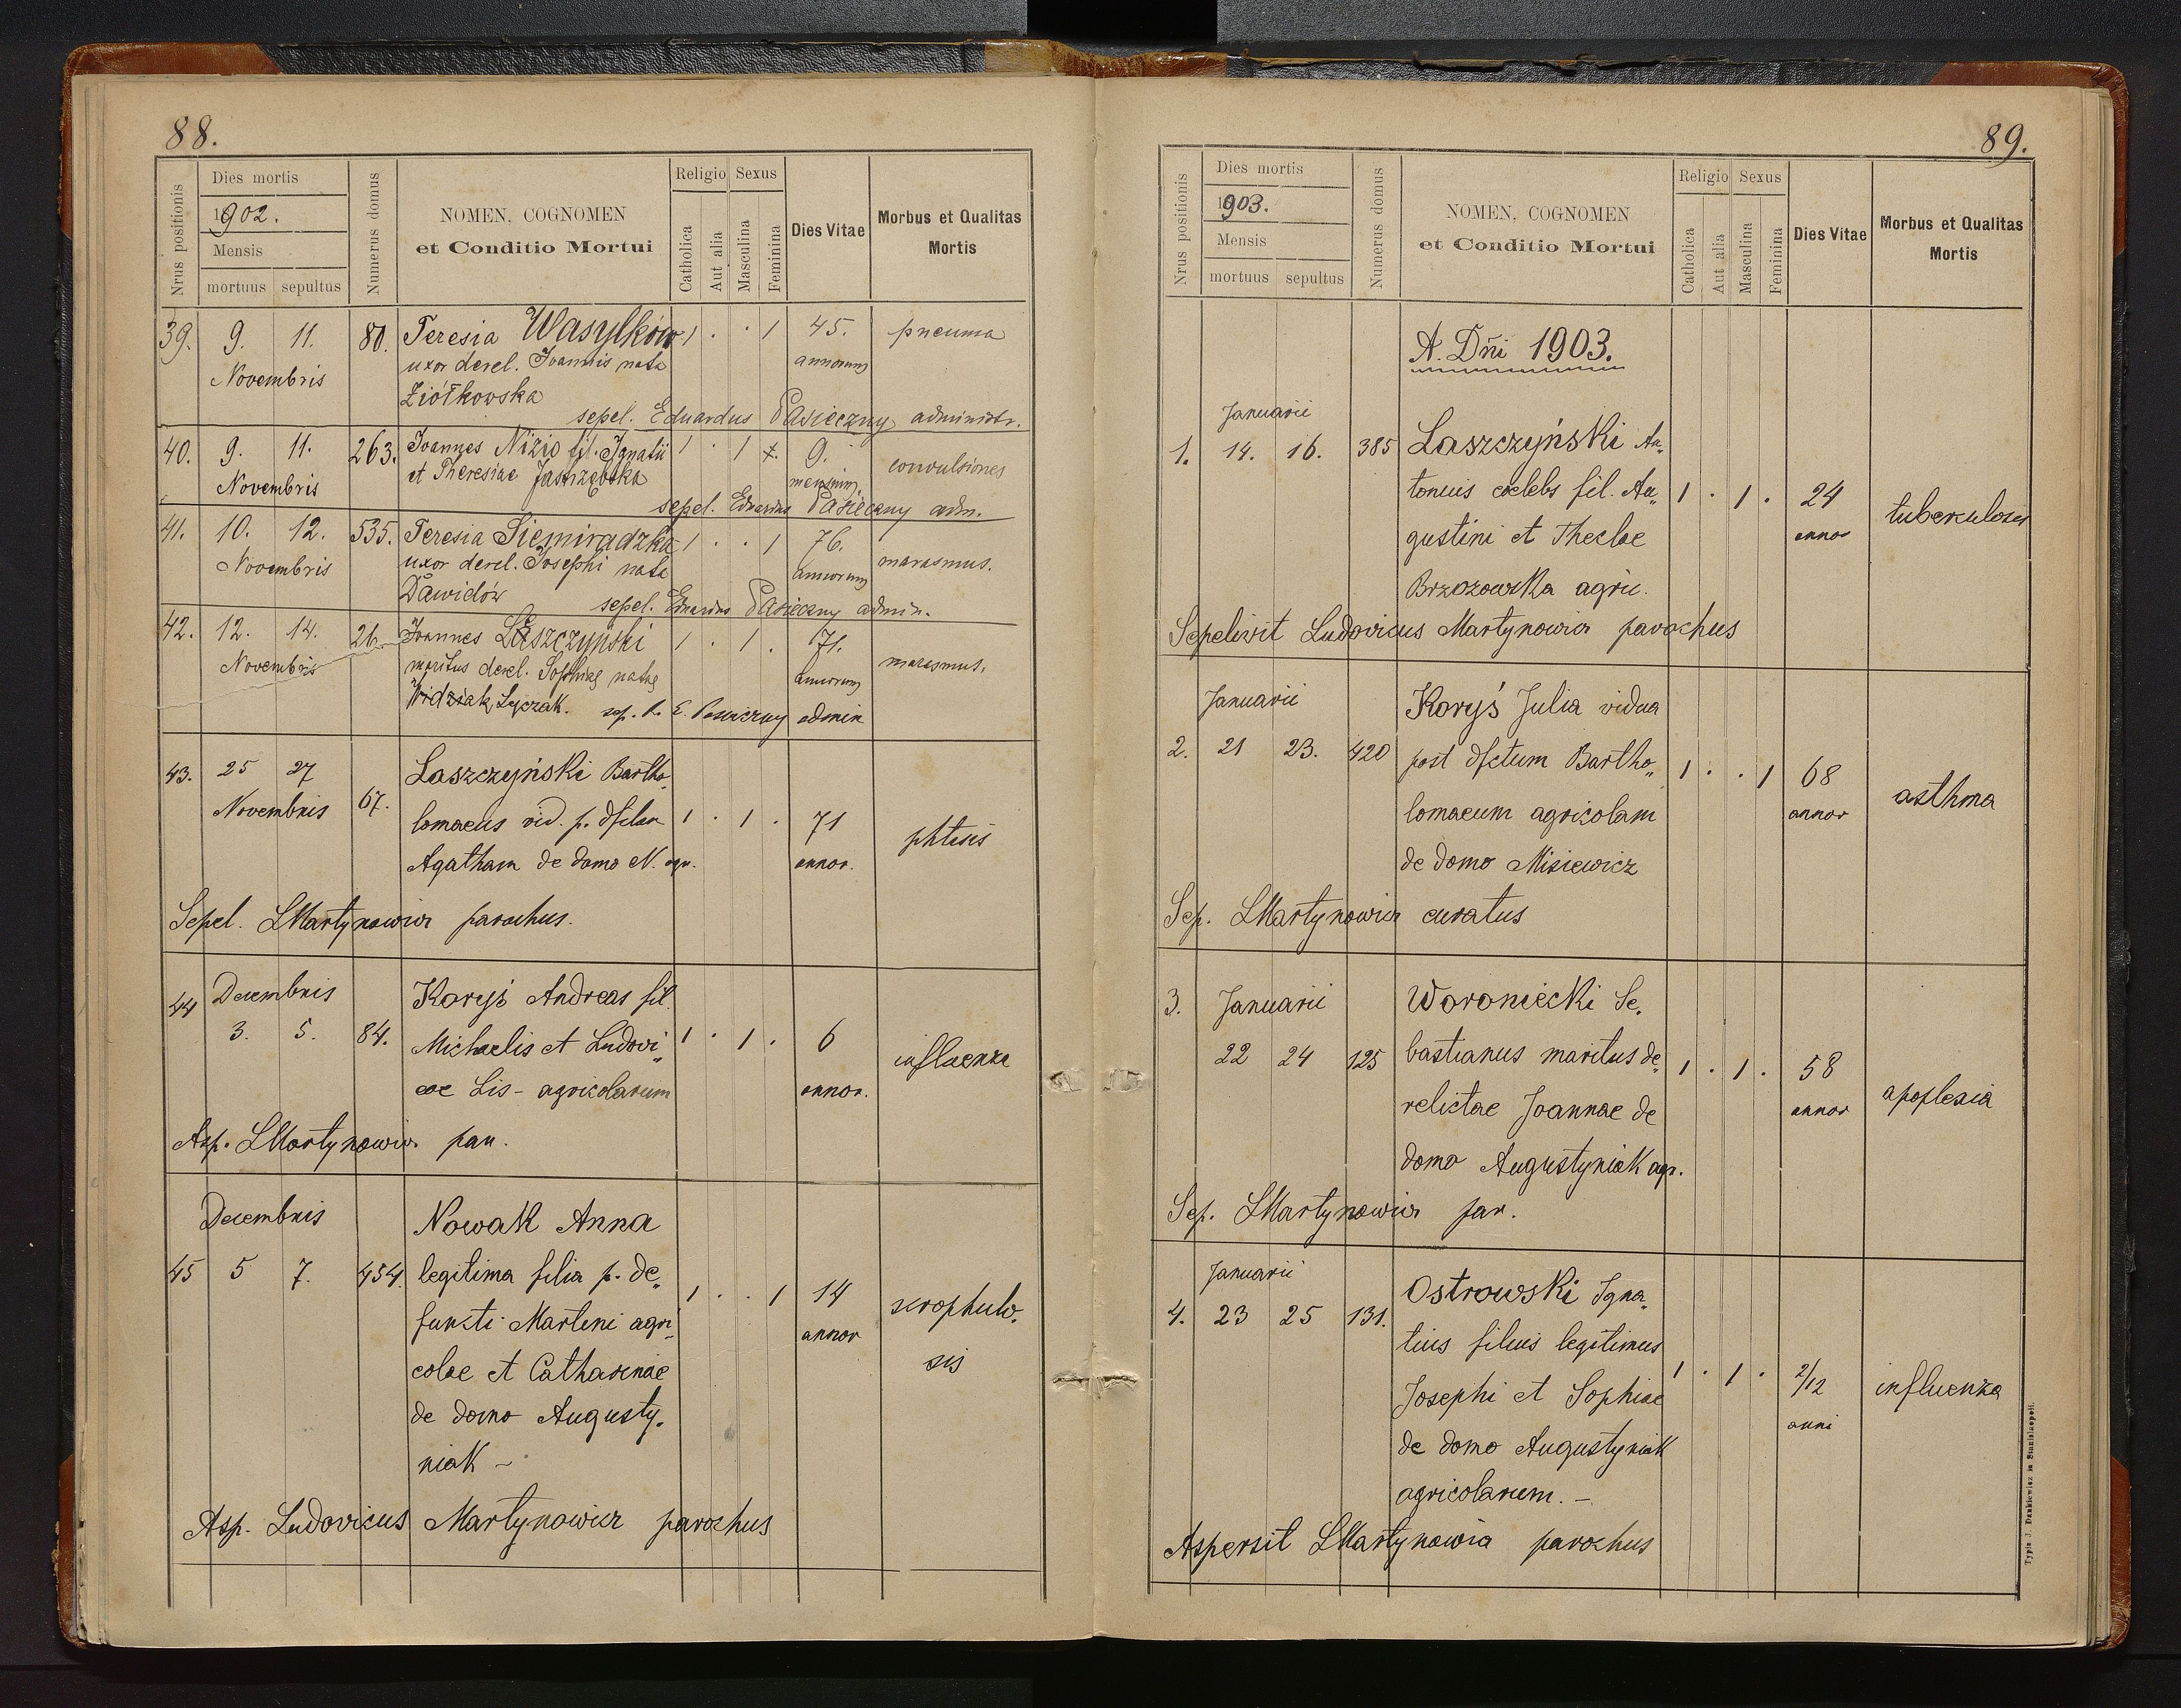 88.
Nrus positionis
Dies mortis
1902.
Mensis
mortuus sepultus
Numerus domus
NOMEN, COGNOMEN
et Conditio Mortui
Religio Sexus
Catholica
Aut alia
Masculina
Feminina
Dies Vitae
Morbus et Qualitas
Mortis
39. 9. 11. 80. Teresia Wasylków 1 · · 1 45. pneuma
Novembris uxor derel. Joannis nata annorum
Ziółkovska
sepel. Eduardus Pasieczny administr.
40. 9. 11. 263. Joannes Nizio fil. Ignatii 1 · 1 9. convulsiones
Novembris et Theresiae Jastrzębska mensium
sepel. Eduardus Pasieczny adm.
41. 10. 12. 535. Teresia Siemiradzka 1 · · 1 76. marasmus.
Novembris uxor derel. Josephi nata annorum
Dawidów
sepel. Eduardus Pasieczny admin.
42. 12. 14. 26. Joannes Laszczyński 1 · 1 . 71. marasmus.
Novembris maritus derel. Sophiae natae annorum
Widziak Łyczak. sep. E. Pasieczny admin
43. 25 27 67. Laszczyński Bartho„
Novembris lomaeus vid. p. dfctam 1 · 1 · 71 phtisis
Agatham de domo N. agr. annor.
Sepel. LMartynowicz parochus.
44 Decembris Koryś Andreas fil
3. 5. 84. Michaelis et Ludovi„ 1 · 1 · 6 influenza
cae Lis - agricolarum annor.
Asp. LMartynowicz par.
Decembris Nowak Anna
45 5 7. 454. legitima filia p. de„ 1 · · 1 14 scrophulo„
functi Martini agri„ annor sis
colae et Catharinae
de domo Augusty„
niak -
Asp. Ludovicus Martynowicz parochus
89.
Nrus positionis
Dies mortis
1903.
Mensis
mortuus sepultus
Numerus domus
NOMEN, COGNOMEN
et Conditio Mortui
Religio Sexus
Catholica
Aut alia
Masculina
Feminina
Dies Vitae
Morbus et Qualitas
Mortis
A. Dñi 1903.
Januarii
1. 14. 16. 385 Laszczyński An„
tonius coelebs fil. Au„ 1 · 1 · 24 tuberculosis
gustini et Theclae annor
Brzozowska agric.
Sepelivit Ludovicus Martynowicz parochus
Januarii Koryś Julia vidua
2. 21 23. 420 post dfctum Bartho„ 1 · · 1 68 asthma
lomaeum agricolam annor
de domo Misiewicz
Sep. LMartynowicz curatus
3. Januarii Woroniecki Se„
22 24 125 bastianus maritus de„ 1 · 1 · 58 apoplexia
relictae Joannae de annor
domo Augustyniak agr.
Sep. LMartynowicz par.
Januarii Ostrowski Igna„
4. 23 25 131. tius filius legitimus 1 · 1 · 2/12 influenza
Josephi et Sophiae anni
de domo Augustyniak
agricolarum. -
Aspersit LMartynowicz parochus
Typis J. Dankiewicz in Stanislaopoli.